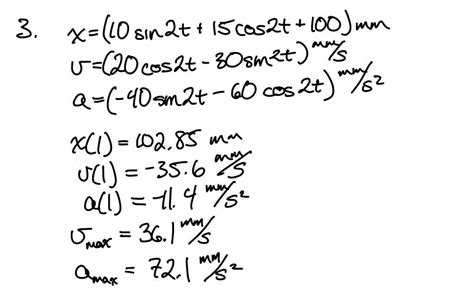 3. x=(10 sin 2t + 15 cos 2t + 100) mm
v=(20 cos 2t - 30 sin 2t) mm/s
a=(-40 sin 2t - 60 cos 2t) mm/s²
x(1) = 102.85 mm
v(1) = -35.6 mm/s
a(1) = -11.4 mm/s²
v max = 36.1 mm/s
a max = 72.1 mm/s²